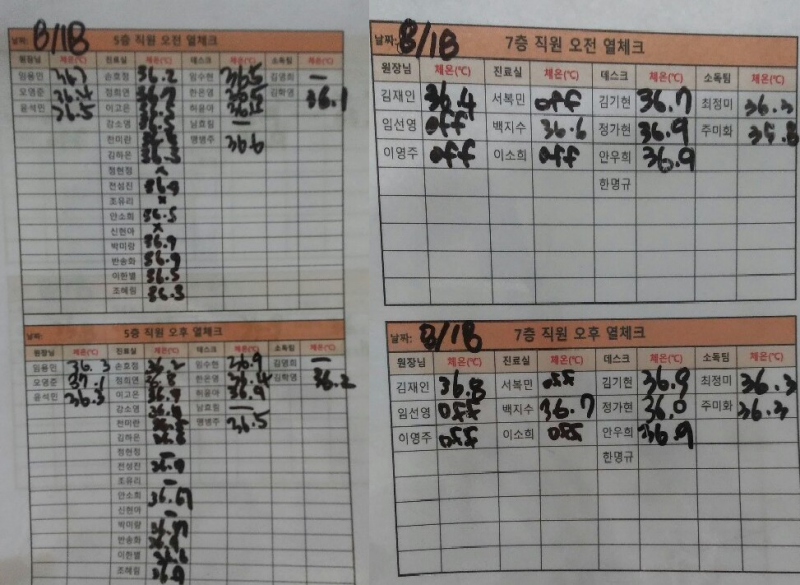 날짜: 8/18 5층 직원 오전 열체크
원장님 체온(℃) 진료실 체온(℃) 데스크 체온(℃) 소독팀 체온(℃)
임용민 손호정 36.2 임수현 36.5 김명희 —
오영준 36.4 정희연 한은영 김학영 36.1
윤석민 36.5 이고은 허윤아
강소영 남효림 —
천미란 맹병주 36.6
김하은
정현정
전성진 36.9
조유리 x
안소희 36.5
신현아 x
박미랑 36.9
반송화 36.9
이한별 36.5
조혜림 36.3
날짜: 5층 직원 오후 열체크
원장님 체온(℃) 진료실 체온(℃) 데스크 체온(℃) 소독팀 체온(℃)
임용민 36.3 손호정 36.2 임수현 36.9 김명희 —
오영준 37.1 정희연 한은영 김학영 36.2
윤석민 36.3 이고은 허윤아 36.9
강소영 남효림 —
천미란 맹병주 36.5
김하은
정현정 —
전성진 36.9
조유리 —
안소희 36.67
신현아 —
박미랑
반송화
이한별
조혜림
날짜: 8/18 7층 직원 오전 열체크
원장님 체온(℃) 진료실 체온(℃) 데스크 체온(℃) 소독팀 체온(℃)
김재인 36.4 서복민 off 김기현 36.7 최정미 36.3
임선영 off 백지수 36.6 정가현 36.9 주미화 35.8
이영주 off 이소희 off 안우희 36.9
한명규
날짜: 8/18 7층 직원 오후 열체크
원장님 체온(℃) 진료실 체온(℃) 데스크 체온(℃) 소독팀 체온(℃)
김재인 36.8 서복민 off 김기현 36.9 최정미 36.3
임선영 off 백지수 36.7 정가현 36.0 주미화 36.3
이영주 off 이소희 off 안우희 36.9
한명규